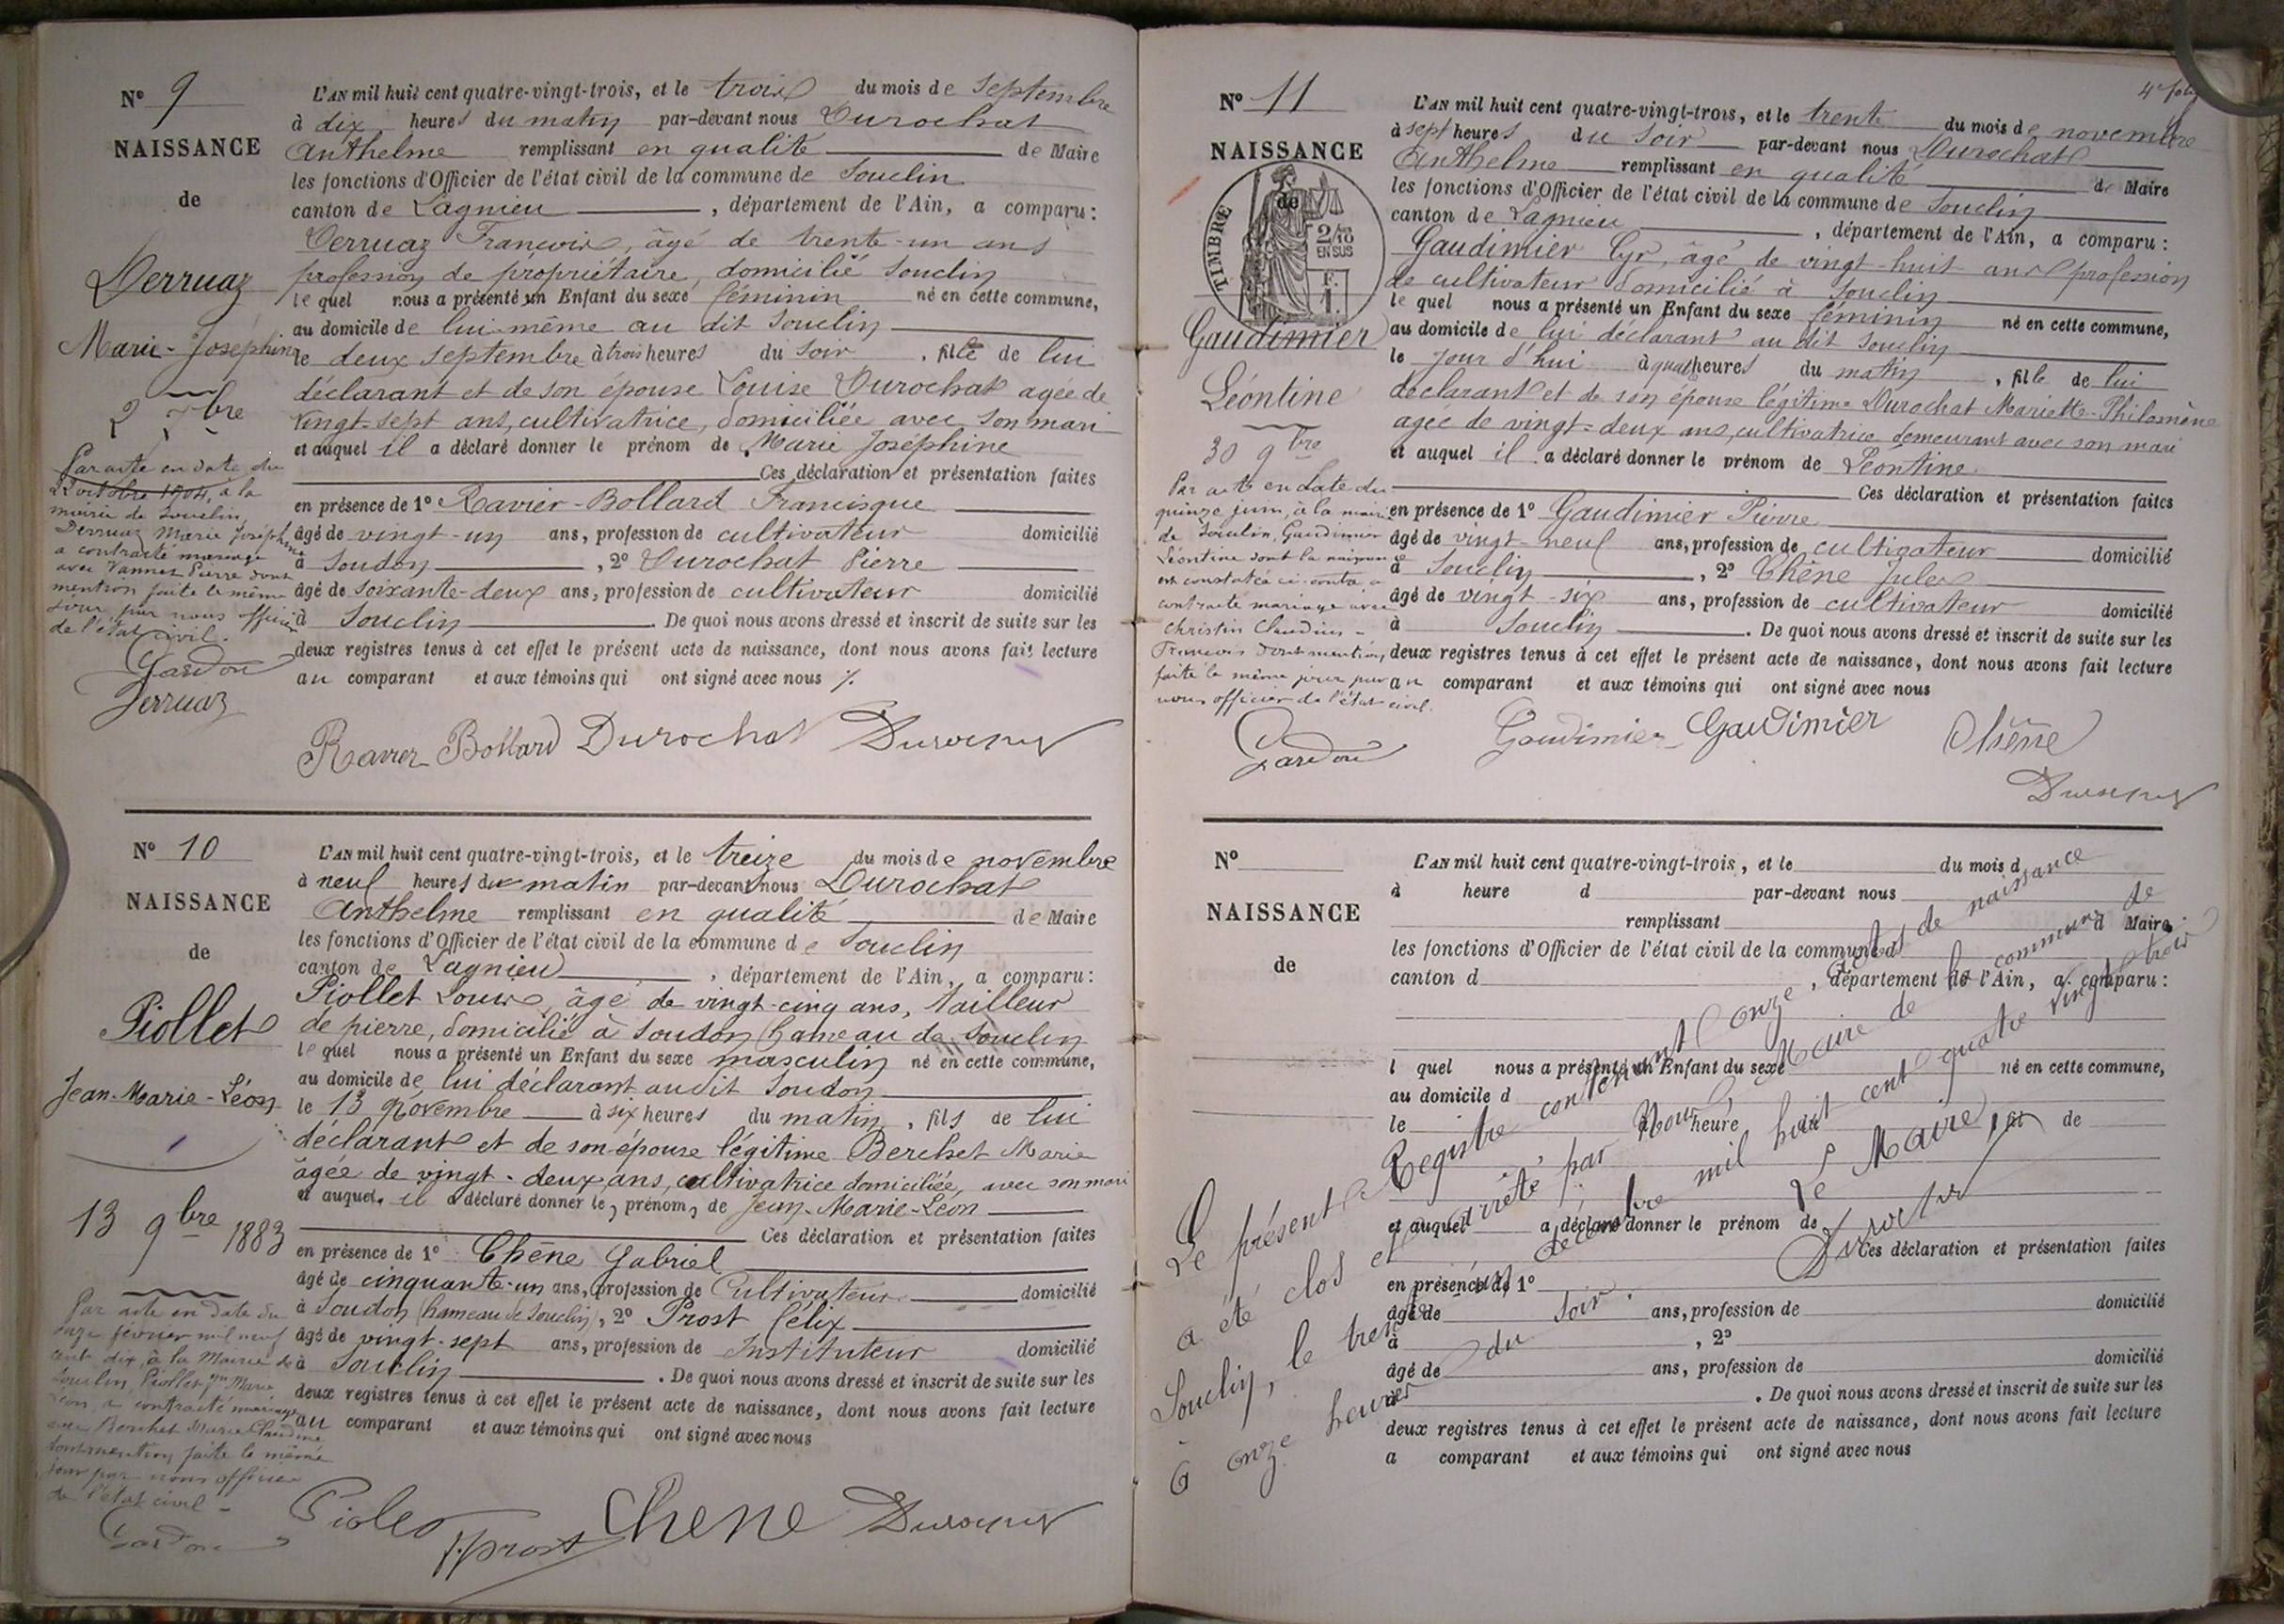 N° 9
NAISSANCE
de
Derruaz
Marie-Joséphine
2 7bre
Par acte en date du
22 octobre 1904, à la
mairie de Souclin
Derruaz Marie Joséphine
a contracté mariage
avec Vannet Pierre dont
mention faite le même
jour par nous officier
de l'état civil.
Gardon
Derruaz
L'AN mil huit cent quatre-vingt-trois, et le trois du mois de Septembre
à dix heures du matin par-devant nous Durochat
Anthelme remplissant en qualité de Maire
les fonctions d'Officier de l'état civil de la commune de Souclin
canton de Lagnieu, département de l'Ain, a comparu:
Derruaz François, âgé de trente-un ans
profession de propriétaire, domicilié Souclin
lequel nous a présenté un Enfant du sexe féminin né en cette commune,
au domicile de lui-même au dit Souclin
le deux septembre à trois heures du soir, fille de lui
déclarant et de son épouse Louise Durochat agée de
vingt-sept ans, cultivatrice, domiciliée avec son mari
et auquel il a déclaré donner le prénom de Marie Joséphine
Ces déclaration et présentation faites
en présence de 1° Ravier-Bollard Francisque
âgé de vingt-un ans, profession de cultivateur domicilié
à Soudon, 2° Durochat Pierre
âgé de soixante-deux ans, profession de cultivateur domicilié
à Souclin. De quoi nous avons dressé et inscrit de suite sur les
deux registres tenus à cet effet le présent acte de naissance, dont nous avons fait lecture
au comparant et aux témoins qui ont signé avec nous
Ravier Bollard Durochat Durochat
N° 10
NAISSANCE
de
Piollet
Jean-Marie-Léon
13 9bre 1883
Par acte en date du
onze février mil neuf
cent dix, à la Mairie de
Souclin, Piollet Jean Marie
Léon a contracté mariage
avec Berchet Marie Claudine
dont mention faite le même
jour par nous officier
de l'état civil -
Gardon
L'AN mil huit cent quatre-vingt-trois, et le treize du mois de novembre
à neuf heures du matin par-devant nous Durochat
Anthelme remplissant en qualité de Maire
les fonctions d'Officier de l'état civil de la commune de Souclin
canton de Lagnieu, département de l'Ain, a comparu:
Piollet Louis, âgé de vingt-cinq ans, tailleur
de pierre, domicilié à Soudon hameau de Souclin
lequel nous a présenté un Enfant du sexe masculin né en cette commune,
au domicile de lui déclarant audit Soudon
le 13 novembre à six heures du matin, fils de lui
déclarant et de son épouse légitime Berchet Marie
âgée de vingt-deux ans, cultivatrice domiciliée, avec son mari
et auquel il a déclaré donner les prénoms de Jean-Marie-Léon
Ces déclaration et présentation faites
en présence de 1° Chêne Gabriel
âgé de cinquante-un ans, profession de Cultivateur domicilié
à Soudon (hameau de Souclin), 2° Prost Félix
âgé de vingt-sept ans, profession de Instituteur domicilié
à Souclin. De quoi nous avons dressé et inscrit de suite sur les
deux registres tenus à cet effet le présent acte de naissance, dont nous avons fait lecture
au comparant et aux témoins qui ont signé avec nous
Piolet F. Prost Chene Durochat
4e folio
N° 11
NAISSANCE
de
TIMBRE
2/10
EN SUS
F.
1.
Gaudimier
Léontine
30 9bre
Par acte en date du
quinze juin, à la mairie
de Souclin, Gaudimier
Léontine dont la naissance
est constatée ci-contre a
contracté mariage avec
Christin Claudius -
François dont mention
faite le même jour par
nous officier de l'état civil.
Gardon
L'AN mil huit cent quatre-vingt-trois, et le trente du mois de novembre
à sept heures du soir par-devant nous Durochat
Anthelme remplissant en qualité de Maire
les fonctions d'Officier de l'état civil de la commune de Souclin
canton de Lagnieu, département de l'Ain, a comparu:
Gaudimier Cyr, âgé de vingt-huit ans profession
de cultivateur domicilié à Souclin
lequel nous a présenté un Enfant du sexe féminin né en cette commune,
au domicile de lui déclarant au dit Souclin
le jour d'hui à quatre heures du matin, fille de lui
déclarant et de son épouse légitime Durochat Mariette-Philomène
agée de vingt-deux ans, cultivatrice demeurant avec son mari
et auquel il a déclaré donner le prénom de Léontine
Ces déclaration et présentation faites
en présence de 1° Gaudimier Pierre
âgé de vingt-neuf ans, profession de cultivateur domicilié
à Souclin, 2° Chêne Jules
âgé de vingt-six ans, profession de cultivateur domicilié
à Souclin. De quoi nous avons dressé et inscrit de suite sur les
deux registres tenus à cet effet le présent acte de naissance, dont nous avons fait lecture
au comparant et aux témoins qui ont signé avec nous
Gaudimier Gaudimier Chêne
Durochat
N°
NAISSANCE
de
L'AN mil huit cent quatre-vingt-trois, et le du mois d
à heure d par-devant nous
remplissant d Maire
les fonctions d'Officier de l'état civil de la commune d
canton d, département de l'Ain, a comparu:
l quel nous a présenté un Enfant du sexe né en cette commune,
au domicile d
le à heure d, fil de
et auquel a déclaré donner le prénom de
Ces déclaration et présentation faites
en présence de 1°
âgé de ans, profession de domicilié
à, 2°
âgé de ans, profession de domicilié
à. De quoi nous avons dressé et inscrit de suite sur les
deux registres tenus à cet effet le présent acte de naissance, dont nous avons fait lecture
a comparant et aux témoins qui ont signé avec nous
Le présent Registre contenant onze actes de naissance
a été clos et arrêté par Nous, Maire de la commune de
Souclin, le trente-un décembre mil huit cent quatre vingt trois
à onze heures du soir.
Le Maire,
Durochat